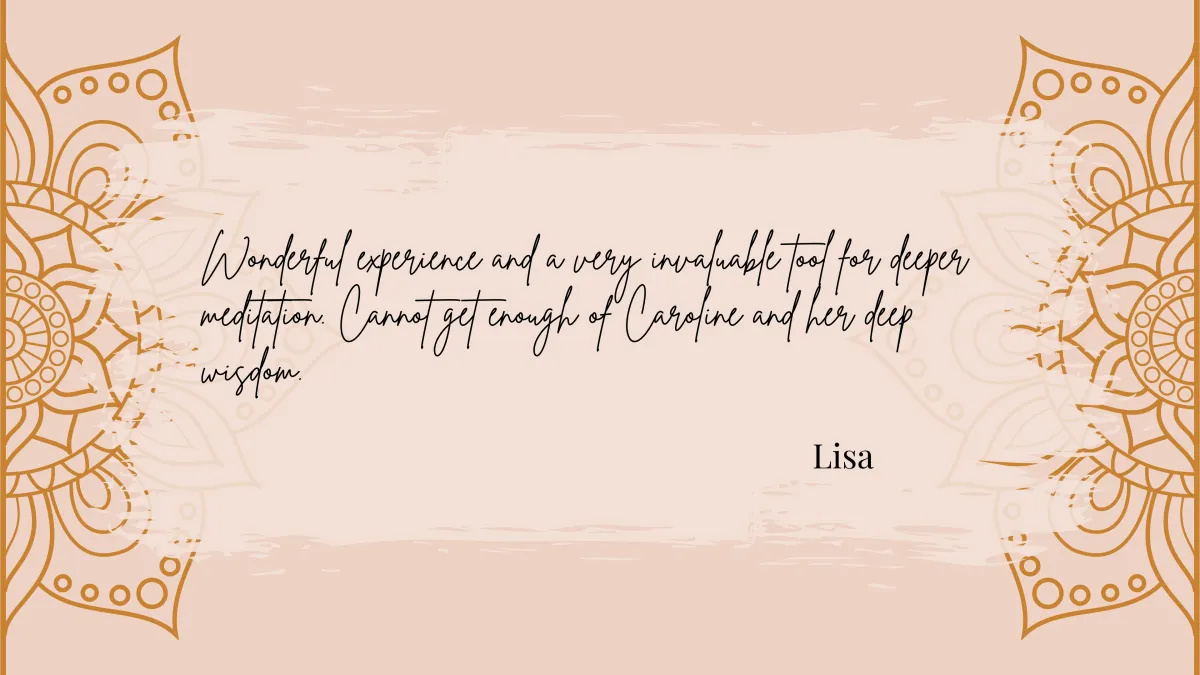 Wonderful experience and a very invaluable tool for deeper
meditation. Cannot get enough of Caroline and her deep
wisdom.
Lisa